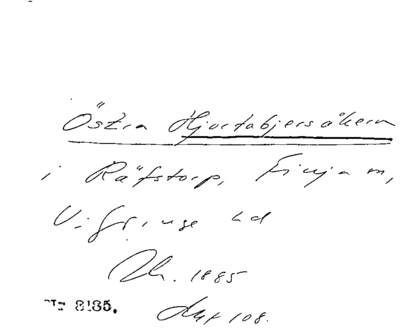 Östra Hjortabjersåkern
i Räfstorp, Finja sn,
V. Göinge hd
Ak. 1885
Nr 8185. Akt 108.